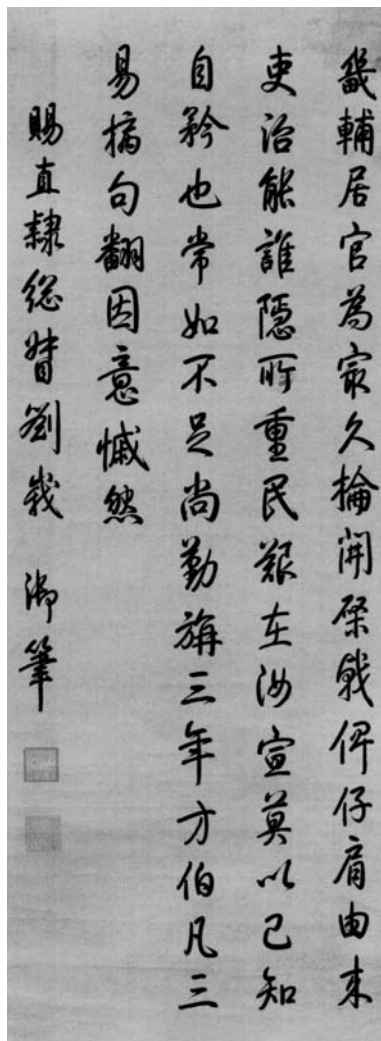 畿輔居官為㝡久掄開棨戟俾仔肩由来
吏治能誰隱所重民艱在汝宣莫以已知
自矜也常如不足尚勤旃三年方伯凡三
易摛句翻因意慽然
賜直隸總督劉峩 御筆